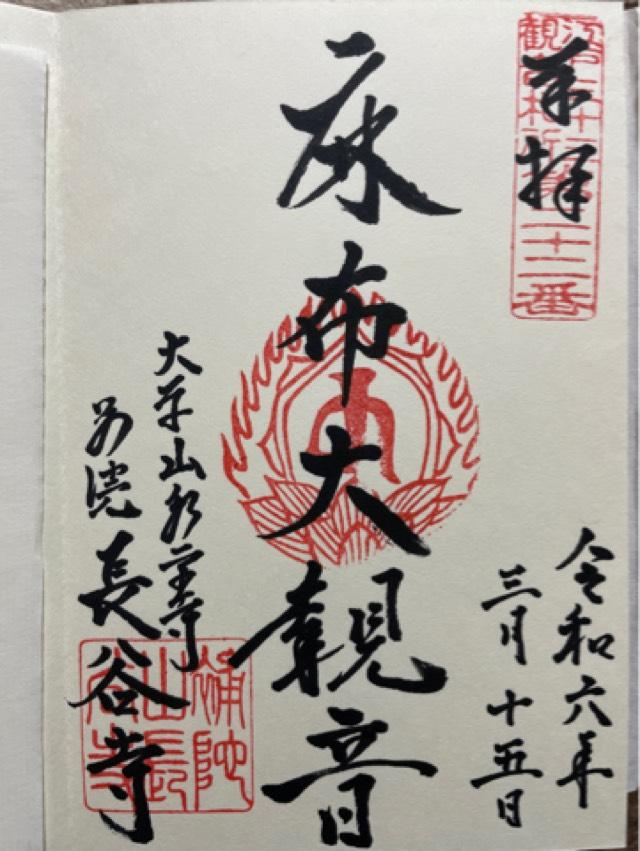 奉拝
江戸三十三
観音札所第二十二番
令和六年
三月十五日
麻布大観音
大本山永平寺
別院長谷寺
補陀
山長
谷寺